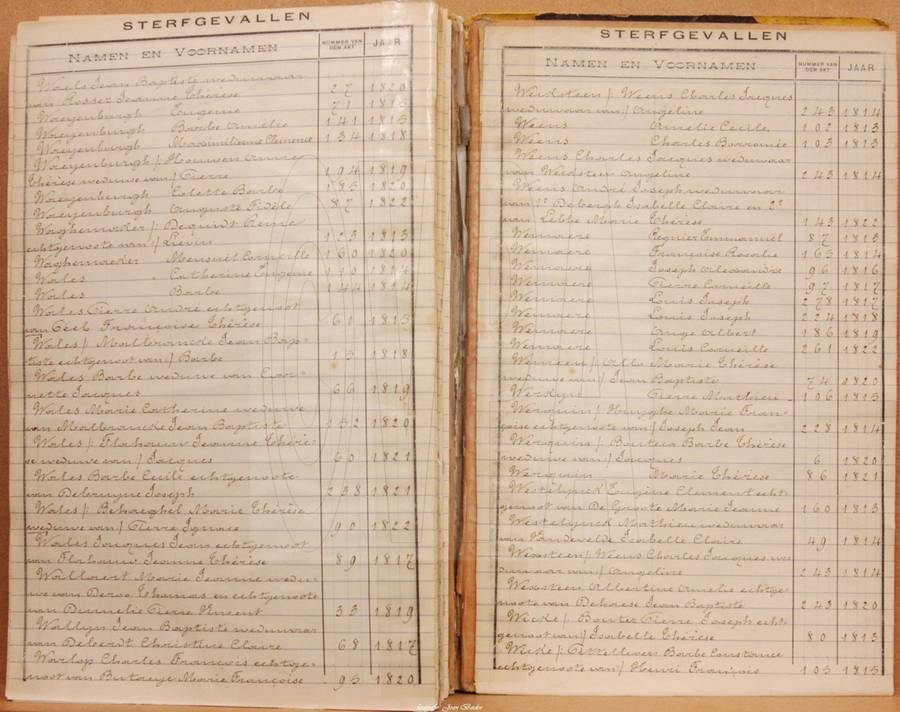 STERFGEVALLEN
NAMEN EN VOORNAMEN NUMMER VAN DEN AKT JAAR
Waels Jean Baptiste weduwnaar
van Rossez Jeanne Thérèse 27 1820
Waeyenburgh Eugenie 71 1813
Waeyenburgh Barbe Amélie 141 1815
Waeyenburgh Maximilienne Clemence 134 1818
Waeyenburgh / Houwen Anne
Thérèse weduwe van / Pierre 194 1819
Waeyenburgh Colette Barbe 185 1820
Waeyenburgh Auguste Fidèle 87 1822
Waghemaeder / Dequidt Reine
echtgenoote van / Liévin 123 1813
Waghemaeder Mensuel Corneille 160 1820
Wales Catherine Eugene 110 1814
Wales Barbe 144 1814
Wales Pierre André echtgenoot
van Françoise Thérèse 61 1815
Wales / Malbrancke Jean Bap-
tiste echtgenoot van / Barbe 13 1818
Wales Barbe weduwe van
Jacques 66 1819
Wales Marie Catherine weduwe
van Malbrancke Jean Baptiste 132 1820
Wales / Flahouw Jeanne Thérè-
se weduwe van / Jacques 60 1821
Wales Barbe Cecile echtgenoote
van Debruyne Joseph 238 1821
Wales / Behaeghel Marie Thérèse
weduwe van / Pierre Ignace 90 1822
Wales Jacques Jean echtgenoot
van Flahouw Jeanne Thérèse 89 1817
Wallaert Marie Jeanne wedu-
we van Deroo Thomas en echtgenoote
van Pierre Vincent 33 1819
Wallyn Jean Baptiste weduwnaar
van Deberdt Christine Claire 68 1817
Warlop Charles François echtge-
noot van Butaeye Marie Françoise 95 1820
STERFGEVALLEN
NAMEN EN VOORNAMEN NUMMER VAN DEN AKT JAAR
Weidsteen / Weens Charles Jacques
weduwnaar van / Angeline 243 1814
Weens Amelie Cecile 102 1813
Weens Charles Barromée 103 1813
Weens Charles Jacques weduwnaar
van Weidsteen Angeline 243 1814
Weens André Joseph weduwnaar
van 1° Debergh Isabelle Claire en 2°
van Lebbe Marie Thérèse 143 1822
Wemaere Regnier Emmanuel 87 1813
Wemaere Françoise Rosalie 165 1814
Wemaere Joseph Alexandre 96 1816
Wemaere Pierre Corneille 97 1817
Wemaere Louis Joseph 278 1817
Wemaere Louis Joseph 224 1818
Wemaere Ange Albert 186 1819
Wemaere Louis Corneille 261 1822
Marie Thérèse
weduwe van / Jean Baptiste 74 1820
Werdyn Pierre Mathieu 106 1813
Werquin / Hauyghe Marie Fran-
çoise echtgenoote van / Joseph Jean 228 1814
Werquin / Bouten Barbe Thérèse
weduwe van / Jacques 6 1820
Werquin Marie Thérèse 86 1821
Westelynck Eugène Clement echt-
genoot van De Groote Marie Jeanne 160 1813
Westelynck Mathieu weduwnaar
van Vandevelde Isabelle Claire 49 1814
Weidsteen / Weens Charles Jacques we-
duwnaar van / Angeline 243 1814
Weidsteen Albertine Amelie echtge-
noote van Dehaese Jean Baptiste 243 1820
Wicke / Bouter Pierre Joseph echt-
genoot van / Isabelle Thérèse 80 1813
Wicke / Barbe Constance
echtgenoote van / Henri François 105 1815